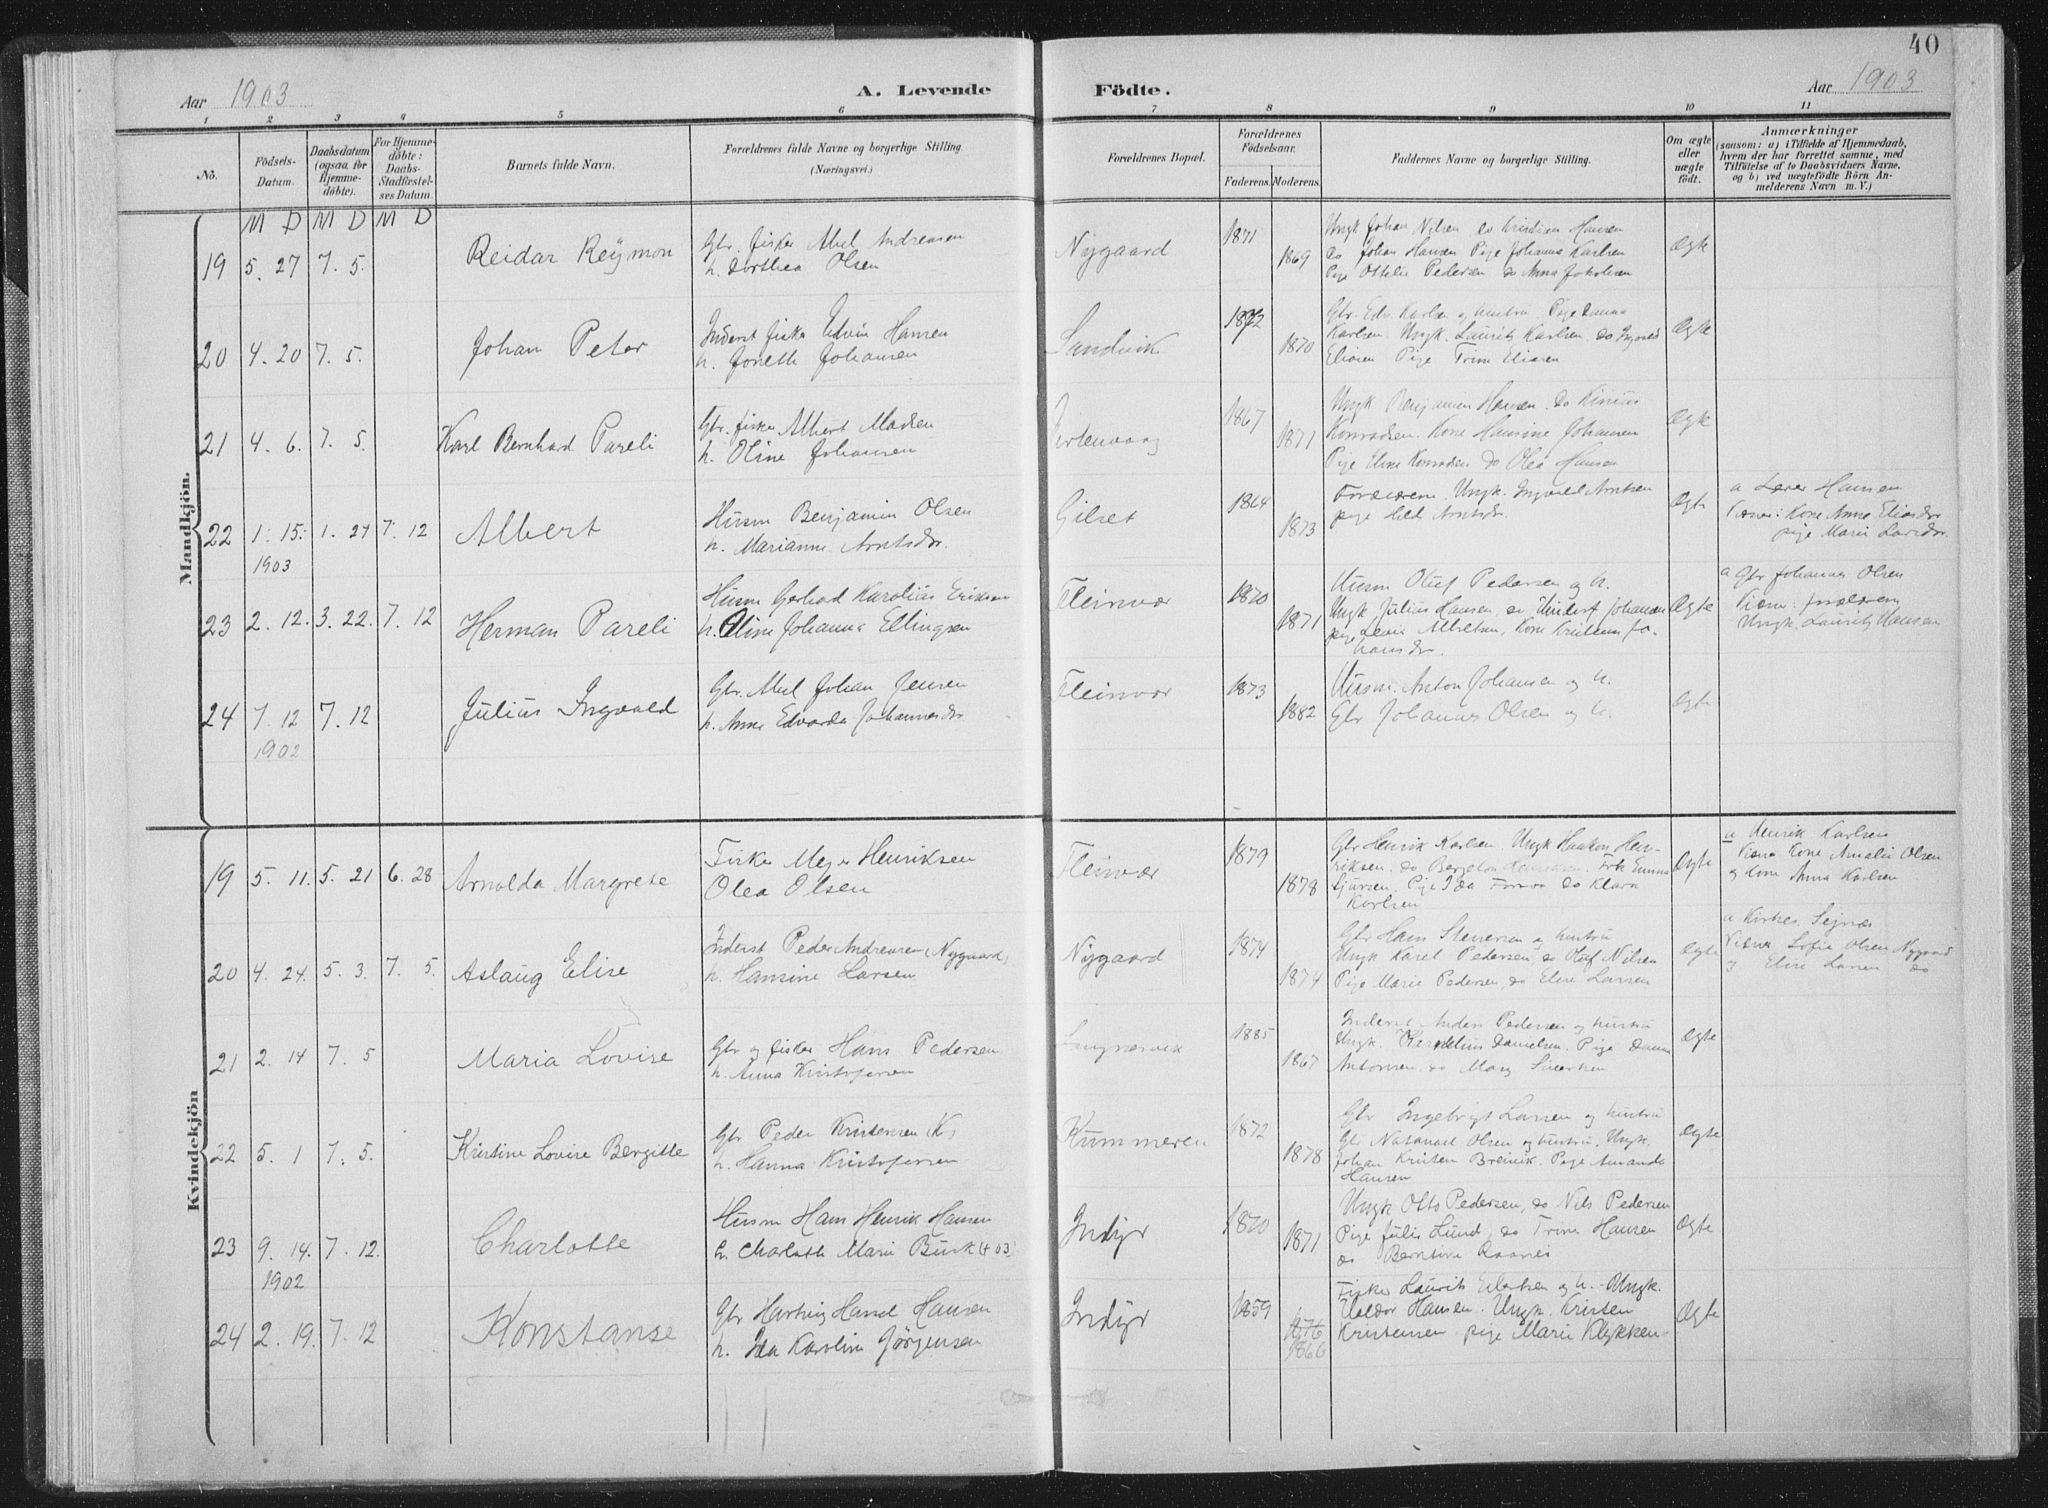 40
Aar 1903
A. Levende
Födte.
Aar 1903
1 2 3 4 5 6 7 8 9 10 11
No.
Födsels-Datum.
Daabsdatum (ogsaa for Hjemmedöbte).
For Hjemmedöbte: Daabs-Stadfæstelses Datum.
Barnets fulde Navn.
Forældrenes fulde Navne og borgerlige Stilling. (Næringsvei.)
Forældrenes Bopæl.
Forældrenes Födselsaar.
Faderens. Moderens.
Faddernes Navne og borgerlige Stilling.
Om ægte eller uægte födt.
Anmærkninger
(saasom: a) i Tilfælde af Hjemmedaab, hvem der har forrettet samme, med Tilföielse af to Daabsvidners Navne, og b) ved uægtefödte Börn Anmelderens Navn m. V.)
M D M D M D
Mandkjön.
19 5. 27 7. 5. Reidar Reymon
Gbr. fisker Abel Andreasen
h. Dorthea Olsen
Nygaard 1871 1869
Ungk Johan Nilsen do Kristian Hansen
do Johan Hansen Pige Johanna Karlsen
Pige Ottelie Pedersen do Anna Jakobsen
Ægte
20 4. 20 7. 5. Johan Peter
Inderst fisker Edvin Hansen
h. Joneth Johansen
Sandvik 1872 1870
Gbr. Edv. Karlsen og hustru Pige Danna
Karlsen. Ungk. Laurits Karlsen do
Eliasen Pige Trine Eliasen
Ægte
21 4. 6. 7. 5. Karl Bernhard Pareli
Gbr. fisker Albert Madsen
h. Oline Johansen
1867 1871
Ungk Benjamin Hansen. do
Konradsen. Kone Hansine Johansen
Pige Eline Konradsen do Olea Hansen
Ægte
22 1. 15. 1903 1. 27 7. 12 Albert
Husm Benjamin Olsen
h. Marianne Arntsdr.
Gilset 1864 1873
Forældrene. Ungk. Ingvald Arntsen
pige Arntsdr.
Ægte
a Lærer Hansen
Vidner: Kone Anna Eliasdr
pige Marie Larsdr.
23 2. 12. 3. 22. 7. 12 Herman Pareli
Husm Gerhard Karolius Eriksen
h. Oline Johanna Ellingsen
Fleinvær 1870 1871
Husm Oluf Pedersen og h.
Ungk Julius Hansen, do Johansen
pige Albertsen, Kone Jo-
hansdr.
Ægte
a Gbr Johannes Olsen
Vidne: forældrene
Ungk. Laurits Hansen
24 7. 12 1902 7. 12 Julius Ingvald
Gbr. Abel Johan Jensen
h. Anna Edvarda Johannesdr.
Fleinvær 1873 1882
Husm. Anton Johansen og h.
Gbr Johannes Olsen og h.
Ægte
Kvindekjön
19 5. 11. 5. 21 6. 28 Arnolda Margrete
Fisker Meyer Henriksen
Olea Olsen
Fleinvær 1879 1878
Gbr Henrik Karlsen. Ungk Haakon Hen-
riksen. do Bergeton Henriksen. Frk Emma
Sjursen, Pige Ida do Klara
Karlsen
Ægte
a Henrik Karlsen
Vidne Kone Amalie Olsen
og Kone Anna Karlsen
20 4. 24. 5. 3. 7. 5. Aslaug Elise
Inderst Peder Andreasen (Nygaard)
h. Hansine Larsen
Nygaard 1874 1874
Gbr Hans Steversen og hustru
Ungk Karel Pedersen do Olaf Nilsen
Pige Marie Pedersen, do Elise Larsen
Ægte
a Kirkes. Sejnæs
Vidner Sofie Olsen Nygaard
og Elise Larsen do
21 2. 14 7. 5 Maria Lovise
Gbr og fisker Hans Pedersen
h. Anna Kristofersen
1885 1867
Inderst Anders Pedersen og hustru
Ungk. Danielsen. Pige Danna
Antonsen do
Ægte
22 5. 1 7. 5. Kristine Lovise Bergitte
Gbr Peder Kristensen (K)
h. Hanna Kristofersen
Kummeren 1872 1878
Gbr Ingebrigt Larsen og hustru
Gbr Natanael Olsen og hustru, Ungk.
Johan Kristen Breivik. Pige Amanda
Hansen
Ægte
23 9. 14. 1902 7. 12. Charlotte
Husm Hans Henrik Hansen
h. Charloth Marie Busk (+ 03)
Indyr 1870 1871
Ungk Otto Pedersen, do Nils Pedersen
Pige Julie Lund, do Trine Hansen
do Berntine
Ægte
24 2. 19. 7. 12 Konstanse
Gbr Hartvig Hansen
h. Ida Karoline Jörgensen
Indyr 1859 1876 1866
Fisker Laurits og h. Ungk.
Valdor Hansen. Ungk. Kristen
Kristensen pige Marie Klykken
Ægte